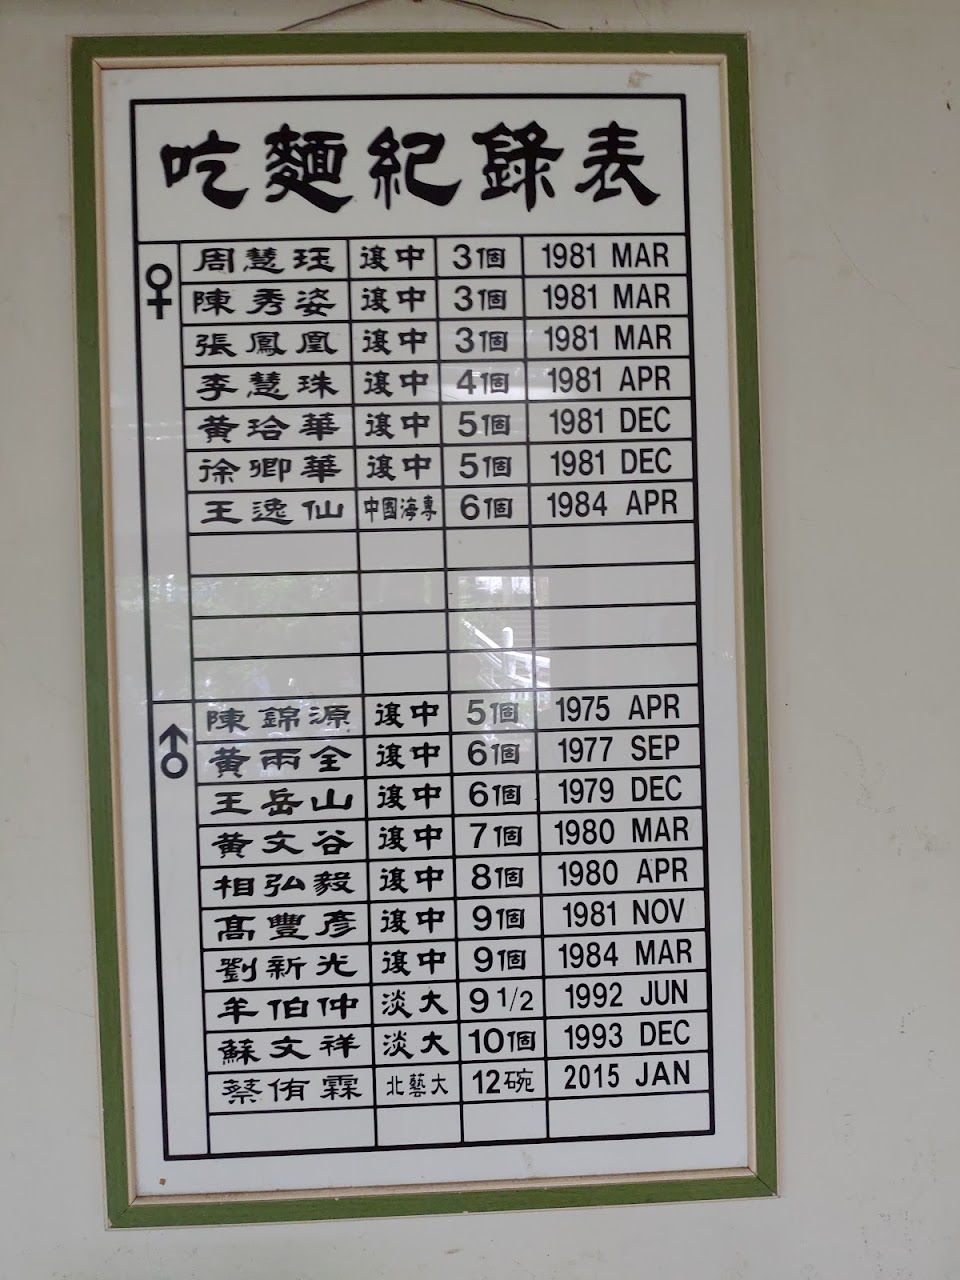 吃麵紀錄表
♀
周慧珏 復中 3個 1981 MAR
陳秀姿 復中 3個 1981 MAR
張鳳凰 復中 3個 1981 MAR
李慧珠 復中 4個 1981 APR
黃珨華 復中 5個 1981 DEC
徐卿華 復中 5個 1981 DEC
王逸仙 中國海專 6個 1984 APR
♂
陳錦源 復中 5個 1975 APR
黃雨全 復中 6個 1977 SEP
王岳山 復中 6個 1979 DEC
黃文谷 復中 7個 1980 MAR
相弘毅 復中 8個 1980 APR
高豐彥 復中 9個 1981 NOV
劉新光 復中 9個 1984 MAR
牟伯仲 淡大 9 1/2 1992 JUN
蘇文祥 淡大 10個 1993 DEC
蔡侑霖 北藝大 12碗 2015 JAN